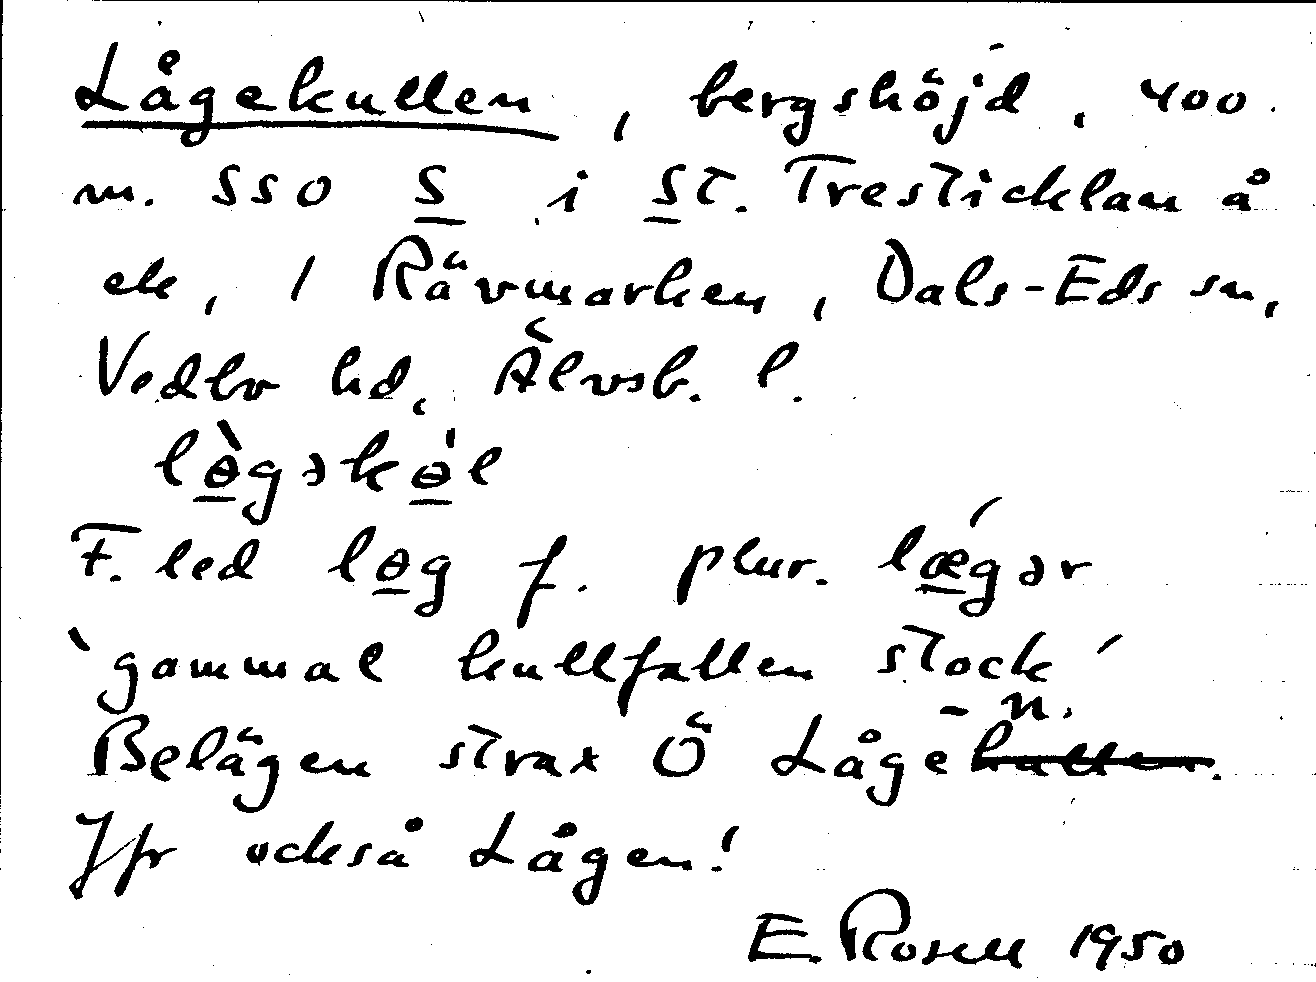 Lågekullen, bergshöjd, 400
m. SSO S i St. Tresticklan å
ek, 1 Rävmarken, Dals-Eds sn,
Vedbo hd, Älvsb. l.
lɵ̀gəkɵ́l
F. led lɵg f. plur. lǽgər
`gammal kullfallen stock´
Belägen strax Ö Låge-n.
Jfr också Lågen!
E. Rosell 1950